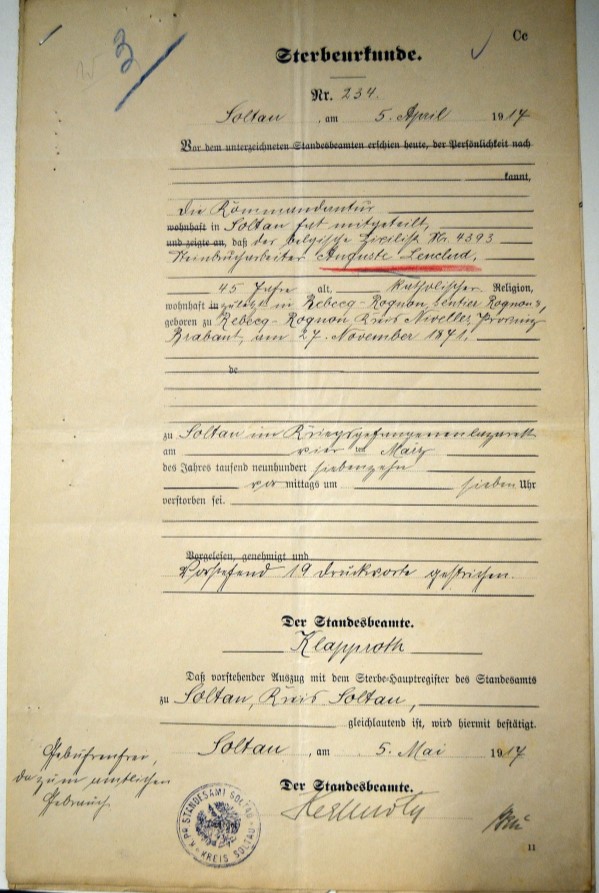 3
Cc
Sterbeurkunde.
Nr. 234.
Soltau, am 5. April 1917
Vor dem unterzeichneten Standesbeamten erschien heute, der Persönlichkeit nach
kannt,
Die Kommandantur
wohnhaft in Soltau hat mitgeteilt,
und zeigte an, daß der belgische Zivilist Nr. 4393
Steinbrucharbeiter Auguste Lenclud,
45 Jahre alt, katholischer Religion,
wohnhaft in zuletzt in Rebecq-Rognon, Sentier Rognon
geboren zu Rebecq-Rognon Kreis Nivelles, Provinz
Brabant, am 27. November 1871,
de
zu Soltau im Kriegsgefangenenlazarett
am vier ten März
des Jahres tausend neunhundert siebenzehn
vor mittags um sieben Uhr
verstorben sei.
Vorgelesen, genehmigt und
Vorstehend 19 Druckworte gestrichen.
Der Standesbeamte.
Klapproth
Daß vorstehender Auszug mit dem Sterbe-Hauptregister des Standesamts
zu Soltau, Kreis Soltau,
gleichlautend ist, wird hiermit bestätigt.
Soltau, am 5. Mai 1917
Gebührenfrei,
da zum amtlichen
Gebrauch.
Der Standesbeamte.
K. PR. STANDESAMT SOLTAU
KREIS SOLTAU
11